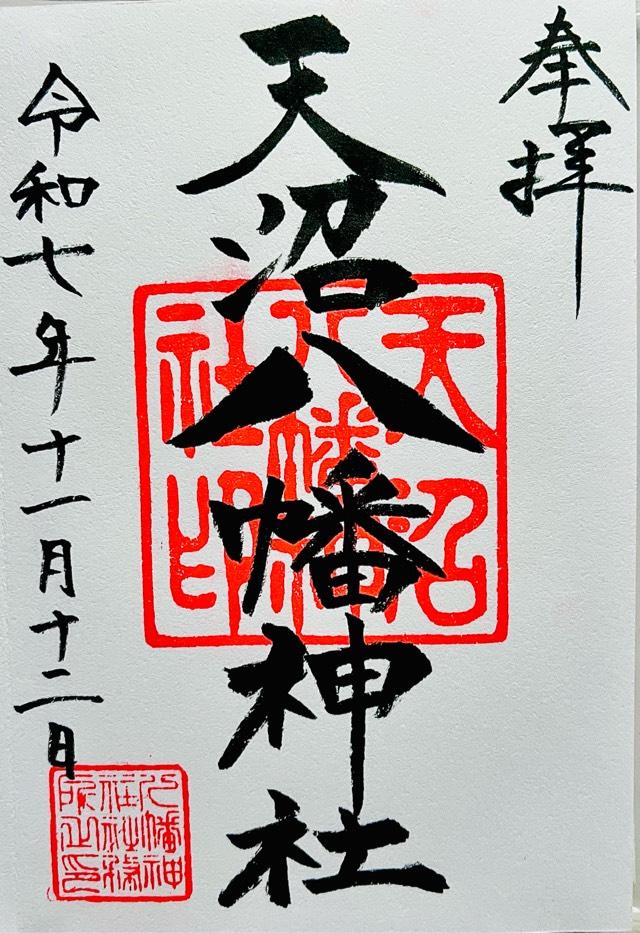 奉拝
天沼八幡神社
令和七年十一月十二日
天沼八幡神社印
八幡神社社務所之印